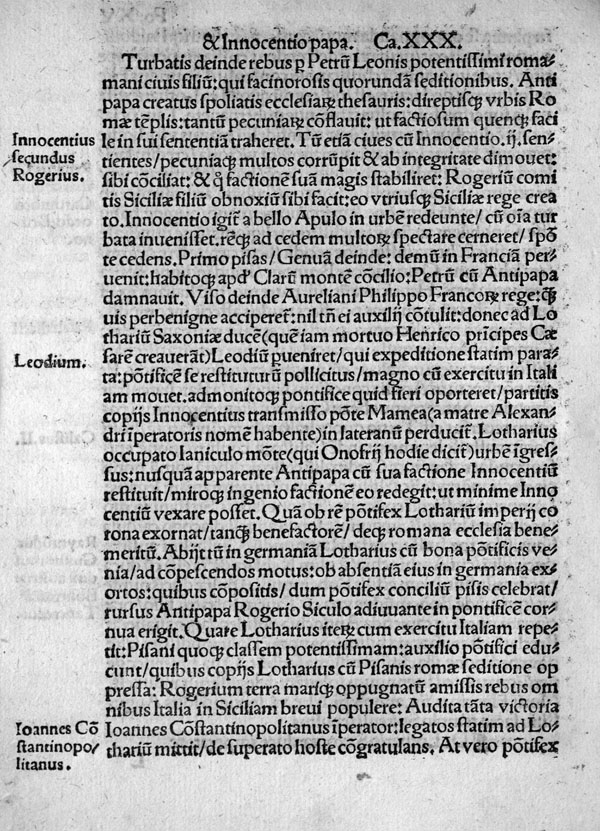 & Innocentio papa. Ca.XXX.
Turbatis deinde rebus ꝑ Petrũ Leonis potentissimi roma⸗
mani ciuis filiũ: qui facinorosis quorundã seditionibus. Anti
papa creatus spoliatis ecclesiaꝝ thesauris: direptisq̃ vrbis Ro
mæ tẽplis: tantũ pecuniaꝝ cõflauit: ut factiosum quenq̃ faci
Innocentius
secundus
Rogerius.
le in sui sententiã traheret. Tũ etiã ciues cũ Innocentio.ij. sen⸗
tientes/pecuniaq̃ multos corrũpit & ab integritate dimouet:
sibi cõciliat: & q̃ factionẽ suã magis stabiliret: Rogeriũ comi
tis Siciliæ filiũ obnoxiũ sibi facit: eo vtriusq̃ Siciliæ rege crea
to. Innocentio igit̃ a bello Apulo in urbẽ redeunte/cũ oĩa tur
bata inuenisset. rẽq̃ ad cedem multoꝝ spectare cerneret/spõ
te cedens. Primo pisas/Genuã deinde: demũ in Franciã per⸗
uenit: habitoq̃ apd' Clarũ montẽ cõcilio: Petrũ cũ Antipapa
damnauit. Viso deinde Aureliani Philippo Francoꝝ rege: q̃
uis perbenigne acciperet̃: nil tñ ei auxilij cõtulit: donec ad Lo
thariũ Saxoniæ ducẽ (quẽ iam mortuo Henrico prĩcipes Cæ
Leodium.
sarẽ creauerãt) Leodiũ pueniret/qui expeditione statim para⸗
ta: põtificẽ se restituturũ pollicitus/magno cũ exercitu in Itali
am mouet. admonitoq̃ pontifice quid fieri oporteret/partitis
copijs Innocentius transmisso põte Mamea (a matre Alexan
dri ĩperatoris nomẽ habente) in lateranũ perducit̃. Lotharius
occupato Ianiculo mõte (qui Onofrij hodie dicit̃) urbẽ ĩgres⸗
sus: nusquã apparente Antipapa cũ sua factione Innocentiũ
restituit/miroq̃ ingenio factionẽ eo redegit: ut minime Inno
centiũ vexare posset. Quã ob rẽ põtifex Lothariũ imperij co
rona exornat/tanq̃ benefactorẽ/deq̃ romana ecclesia bene⸗
meritũ. Abijt tũ in germaniã Lotharius cũ bona põtificis ve⸗
nia/ad cõpescendos motus: ob absentiã eius in germania ex⸗
ortos: quibus cõpositis/dum põtifex conciliũ pisis celebrat/
rursus Antipapa Rogerio Siculo adiuuante in pontificẽ cor⸗
nua erigit. Quare Lotharius iteꝝ cum exercitu Italiam repe⸗
tit: Pisani quoq̃ classem potentissimam: auxilio põtifici edu⸗
cunt/quibus copijs Lotharius cũ Pisanis romæ seditione op
pressa: Rogerium terra mariq̃ oppugnatũ amissis rebus om
nibus Italia in Siciliam breui populere: Audita tãta victoria
Ioannes Cõ
stantinopo/
litanus.
Ioannes Cõstantinopolitanus ĩperator: legatos statim ad Lo⸗
thariũ mittit/de superato hoste cõgratulans. At vero põtifex